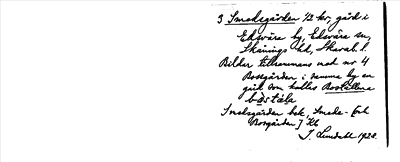 3 Smedsgården 1/2 hr, gård i
Edsvära by, Edsvära sn,
Skånings hd, Skarab. l.
Bildar tillsammans med nr 4
Rosgården i samma by en
gård som kallas
Smedsgården bek, Smeds- [och
Rosgården] Kb
S. Lundahl 1920.